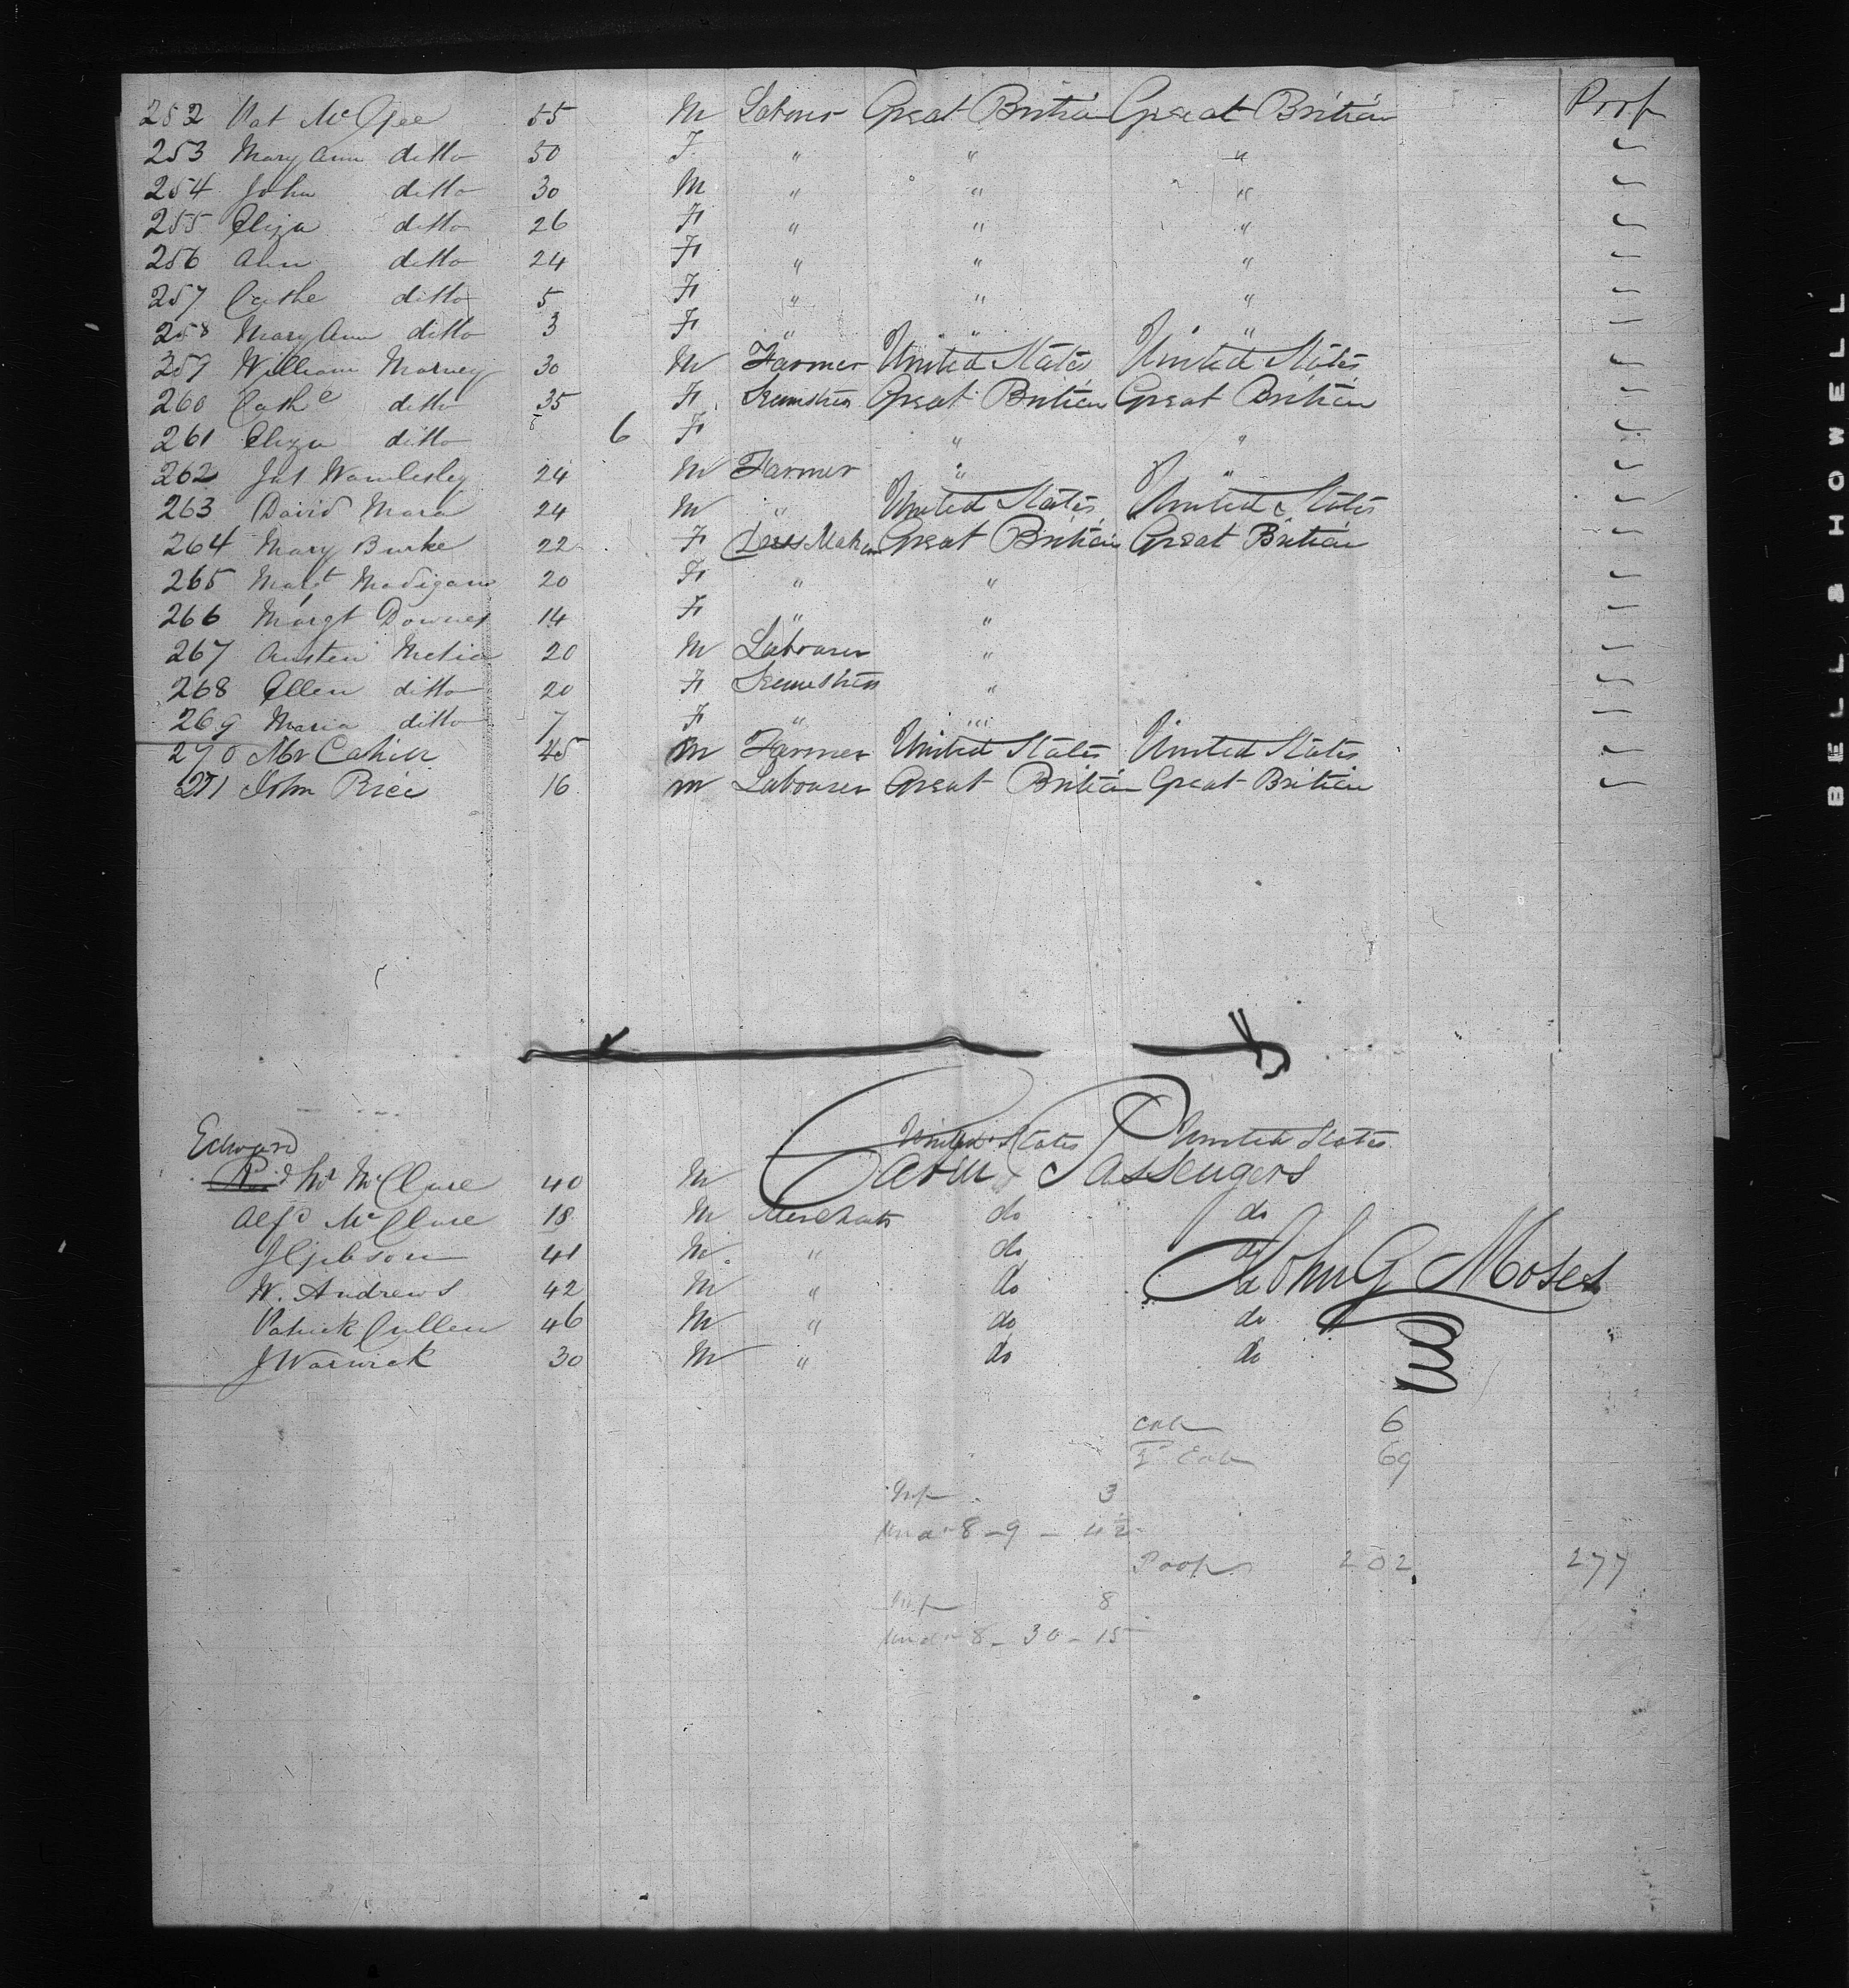 252 Pat McGee 55 M Labour Great Britian Great Britian Poop
253 Mary Ann ditto 50 F " " "
254 John ditto 30 M " " "
255 Eliza ditto 26 F " " "
256 Ann ditto 24 F " " "
257 Cathe ditto 5 F " " "
258 Mary Ann ditto 3 F " " "
259 William Marney 30 M Farmer United States United States
260 Cathe ditto 35 F Seamstress Great Britian Great Britian
261 Eliza ditto 6 F " "
262 Jas Wamlesley 24 M Farmer " "
263 David Mara 24 M " United States United States
264 Mary Burke 22 F Dress Maker Great Britian Great Britian
265 Margt Madigan 20 F " "
266 Margt Downes 14 F " "
267 Austen 20 M Labourer "
268 Ellen ditto 20 F Seamstress "
269 Maria ditto 7 F " "
270 Mr Cahier 45 M Farmer United States United States
271 John Price 16 M Labourer Great Britian Great Britian
Edward
United States United States
McClure 40 M Cabin Passengers
Alfd McClure 18 M Merchants do do
J Gibson 41 M " do do
W. Andrews 42 M " do do
John G Moses
Patrick Cullen 46 M " do do
J Warwick 30 M " do do
Cab 6
2d Cab 69
Inf 3
Under 8 - 9 - 4½
Poop 202 277
Inf 8
Under 8 - 30 - 15
BELL & HOWELL